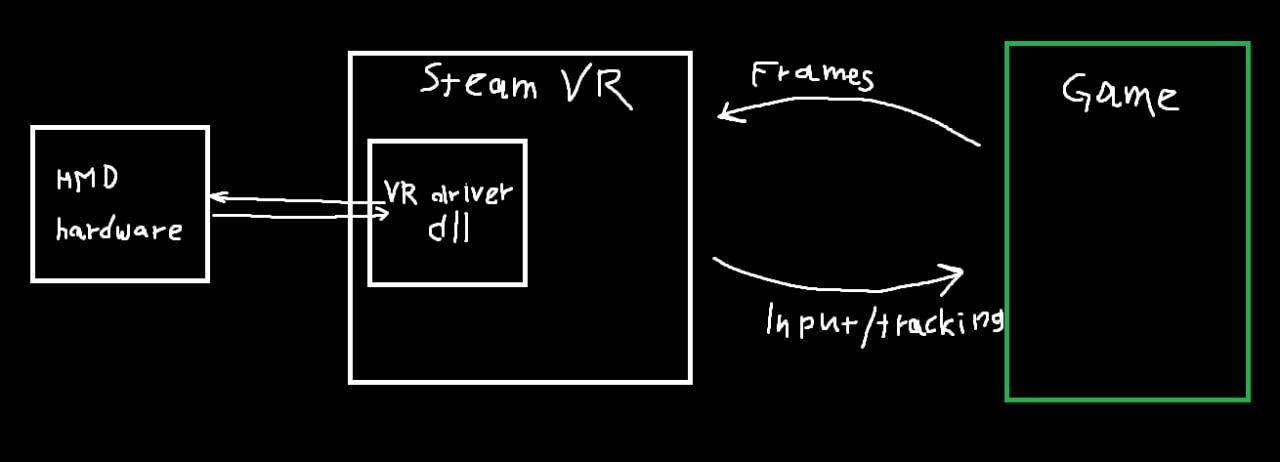 HMD
hardware
Steam VR
VR driver
dll
Frames
Input/tracking
Game